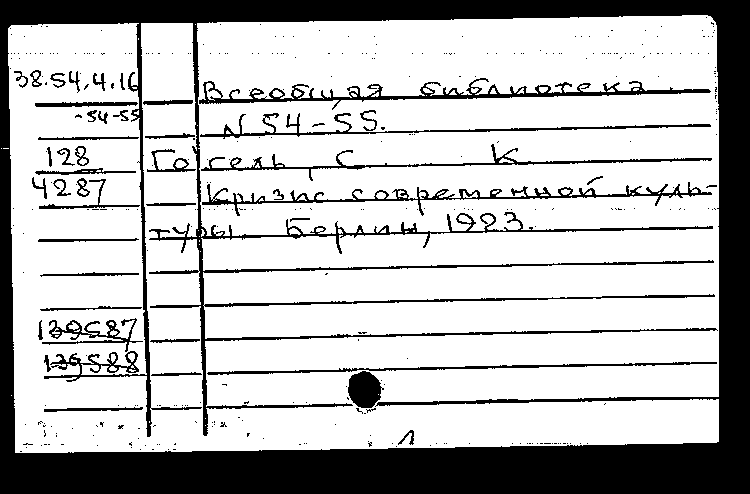 38.54.4.16 Всеобщая библиотека.
-54-55 N 54-55.
128 Гоісель, С. К
4287 Кризис современной куль-
туры. Берлин, 1923.
139587
139588